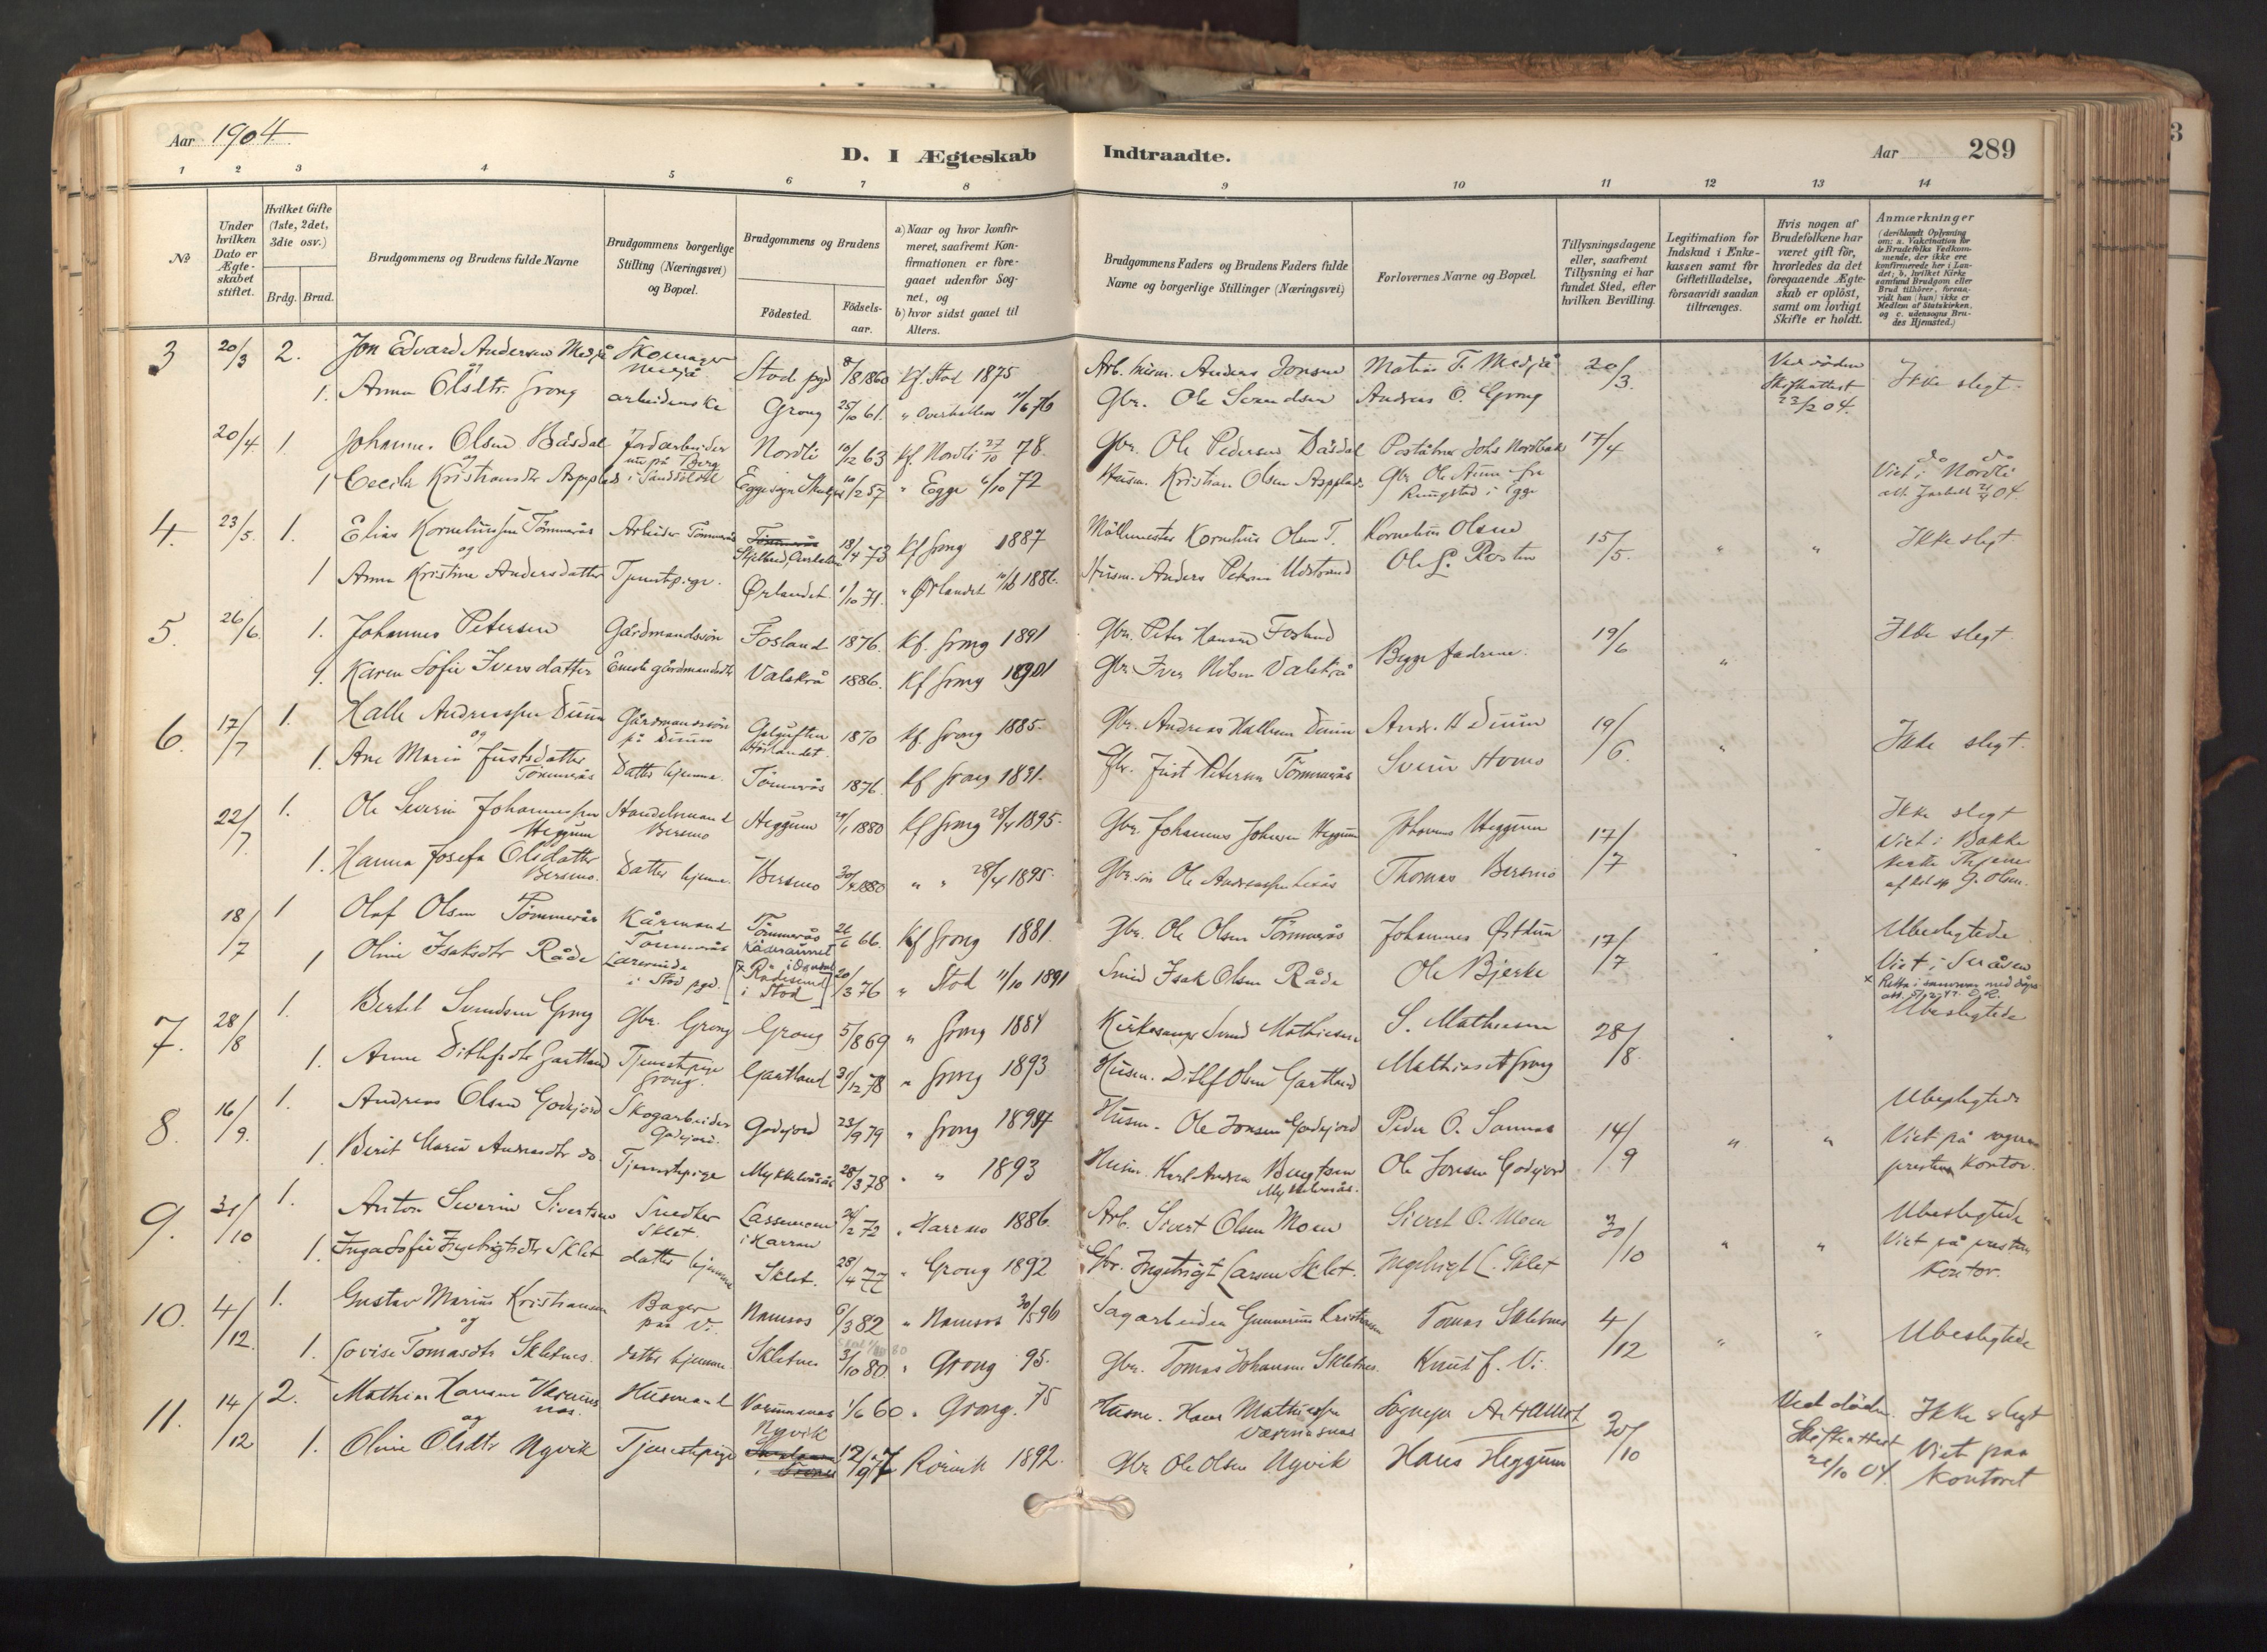 Aar 1904
D. I Ægteskab Indtraadte.
Aar 289
1 2 3 4 5 6 7 8 9 10 11 12 13 14
No
Under hvilken Dato er Ægteskabet stiftet.
Hvilket Gifte (1ste, 2det, 3die osv.)
Brdg. Brud.
Brudgommens og Brudens fulde Navne
Brudgommens borgerlige Stilling (Næringsvei) og Bopæl.
Brudgommens og Brudens
Födested.
Födsels-aar.
a) Naar og hvor konfirmeret, saafremt Konfirmationen er foregaaet udenfor Sognet, og
b) hvor sidst gaaet til Alters.
Brudgommens Faders og Brudens Faders fulde Navne og borgerlige Stillinger (Næringsvei)
Forlovernes Navne og Bopæl.
Tillysningsdagene eller, saafremt Tillysning ei har fundet Sted, efter hvilken Bevilling.
Legitimation for Indskud i Enkekassen samt for Giftetilladelse, forsaavidt saadan tiltrænges.
Hvis nogen af Brudefolkene har været gift för, hvorledes da det foregaaende Ægteskab er oplöst, samt om lovligt Skifte er holdt.
Anmærkninger
(deriblandt Oplysning om: a. Vakcination for de Brudefolks Vedkommende, der ikke ere konfirmerede her i Landet; b. hvilket Kirkesamfund Brudgom eller Brud tilhörer, forsaavidt han (hun) ikke er Medlem af Statskirken, og c. udensogns Brudes Hjemsted.)
3 20/3 2. Jon Edvard Andersen Medjå Skomager Medjå Stod pgd 8/8 1860 Kf. Stod 1875 Arb. husm. Anders Jonsen Matias T. Medjå 20/3 Ved döden Skifteattest 23/2 04. Ikke slegt.
og
1. Anna Olsdtr. Grong arbeiderske Grong 25/10 61. " Overhallen 11/6 76 Gbr. Ole Svendsen Andreas O. Grong
20/4 1. Johannes Olsen Båsdal Jordarbeider nu på Berg i Sandsölet Nordli 10/12 63 Kf. Nordli 27/10 78. Gbr. Ole Pedersen Båsdal Poståbner Johs Nordbak 17/4 do do
og
1 Cecilie Kristiansdtr Aspplads Egge sogn 10/2 57 " Egge 6/10 72 Husm. Kristian Olsen Aspplads Gbr Ole Aune fra Rungstad i Egge Viet i Nordli
4. 23/5. 1. Elias Korneliussen Tömmerås Arbeider Tömmerås 13/4 73 Kf Grong 1887 Möllemester Kornelius Olsen T. Kornelius Olsen 15/5. " " Ikke slegt
og
1 Anna Kristine Andersdatter Tjenestpige. Ørlandet 1/10 71. " Ørlandet 1886. Husm. Anders Petersen Udstrand Ole L. Rosten
5. 26/6. 1. Johannes Petersen Gårdmandssön Fosland 1876. Kf. Grong 1891 Gbr. Peter Hansen Fosland Begge fædrene. 19/6 " Ikke slegt.
1. Karen Sofie Iversdatter Eneste gårdmandsdtr Valskrå 1886. Kf Grong 1901 Gbr Iver Nilsen Valskrå
6. 17/7 1. Halle Andreassen Duun Gårdmandssön på Duun 1870 Kf. Grong 1885. Gbr. Andreas Hallesen Duun Andr. H Duun 19/6. " Ikke slegt.
og
1. Ane Maria Justsdatter Tömmerås Datter hjemme. Tömmerås 1876. Kf Grong 1891. Gbr. Just Petersen Tömmerås Svein Homo
22/7. 1. Ole Severin Johannessen Heggum Handelsmand Bersmo Heggum 1880 Kf Grong 28/4 1895. Gbr. Johannes Johnsen Heggum Johannes Heggum 17/7 Ikke slegt Viet i Bakke
1. Hanna Josefa Olsdatter Bersmo. Datter hjemme. Bersmo 1880 " " 28/4 1895. Gbr. sön Ole Andreassen Thomas Bersmo
18/7 1 Olaf Olsen Tömmerås Kårmand Tömmerås Tömmerås 26/6 66. Kf Grong 1881. Gbr. Ole Olsen Tömmerås Johannes Østduun 17/7 Ubeslegtede
1 Oline Isaksdtr Råde Lærerinde i Stod pgd. i Stod 20/3 76 " Stod 11/10 1891 Smed Isak Olsen Råde Ole Bjerke Viet i Snåsen
7. 28/8 1. Bertel Svendsen Grong Gbr. Grong Grong 5/8 69 " Grong 1884 Kirkesanger Svend Mathiesen S. Mathiesen 28/8. Ubeslegtede
1. Anna Ditlefsdtr Gartland Tjenestpige Grong. Gartland 31/12 78 " Grong 1893 Husm. Ditlef Olsen Gartland Mathias A Grong
8. 16/9. 1. Andreas Olsen Godejord Skogarbeider Godejord. Godejord 23/9 79 " Grong 1894 Husm. Ole Jonsen Godejord Peder O. Sannes 14/9 " " Ubeslegtede
1. Berit Maria Andreasdtr do Tjenestpige Mykkelvåsås 28/3 78 " " 1893 Husm. Karl Andreas Bengtsen Mykkelvasås. Ole Jonsen Godejord Viet på sogneprestens kontor.
9. 31/10 1. Anton Severin Sivertsen Snedker Sklet. Lassemoen i Harran 24/2 72 " Harran 1886. Arb. Sivert Olsen Moen Sivert O. Moen 30/10 " " Ubeslegtede
1. Inga Sofie Ingebrigtsdtr Sklet datter hjemme Sklet. 28/4 77 " Grong 1892 Gbr. Ingebrigt Larsen Sklet. Ingebrigt L. Sklet Viet på presten Kontor.
10. 4/12. 1. Gustav Marius Kristiansen Bager paa Vi. Namsos 6/3 82 " Namsos 30/5 96 Sagarbeider Gunnerius Kristiansen Tomas Skletnes 4/12 " " Ubeslegtede
og
1. Lovise Tomasdtr Skletnes. datter hjemme Skletnes 3/10 80. " Grong 95. Gbr. Tomas Johansen Skletnes. Knut f. Vi.
11. 14/12 2. Mathias Hansen Værumsnes. Husmand Værumsnes 1/6 60 " Grong. 75 Husm. Hans Mathiassen Værumsnes Sognepr 30/10 Ved döden. Skifteattest 21/10 04. Ikke slegt
og
1. Oline Olsdtr Nyvik Tjenestpige Nyvik 12/9 77 Rörvik 1892. Gbr Ole Olsen Nyvik Hans Heggum Viet paa Kontoret